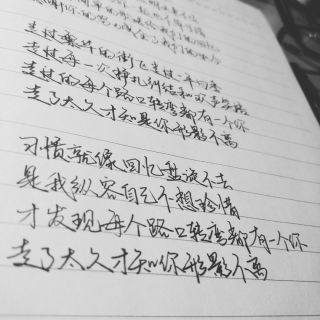 走过的街走过一年四季
走过每一次挣扎纠结和
走过的每个路口转弯都有一个你
走了太久才知是你形影不离
习惯就像回忆盘旋不去
是我纵容自己不想珍惜
才发现每个路口转弯都有一个你
走了太久才知你形影不离